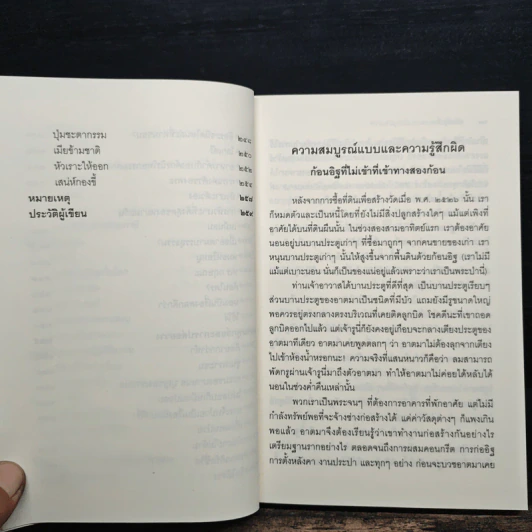 ปุ่มชะตากรรม ๒๔๘
เมียข้ามชาติ ๒๕๐
หัวเราะให้ออก ๒๕๒
เสน่ห์กองขี้ ๒๕๔
หมายเหตุ ๒๕๘
ประวัติผู้เขียน ๒๕๙
ความสมบูรณ์แบบและความรู้สึกผิด
ก้อนอิฐที่ไม่เข้าที่เข้าทางสองก้อน
หลังจากการซื้อที่ดินเพื่อสร้างวัดเมื่อ พ.ศ. ๒๕๒๖ นั้น เรา
ก็หมดตัวและเป็นหนี้โดยที่ยังไม่มีสิ่งปลูกสร้างใดๆ แม้แต่เพิงที่
อาศัยได้บนที่ดินผืนนั้น ในช่วงสองสามอาทิตย์แรก เราต้องอาศัย
นอนอยู่บนบานประตูเก่าๆ ที่ซื้อมาถูกๆ จากคนขายของเก่า เรา
หนุนบานประตูเก่าๆ นั้นให้สูงขึ้นจากพื้นดินด้วยก้อนอิฐ (เราไม่มี
แม้แต่เบาะนอน นั่นก็เป็นของแน่อยู่แล้วเพราะว่าเราเป็นพระป่านี่)
ท่านเจ้าอาวาสได้บานประตูที่ดีที่สุด เป็นบานประตูเรียบๆ
ส่วนบานประตูของอาตมาเป็นชนิดที่มีบัว แถมยังมีรูขนาดใหญ่
พอควรอยู่ตรงกลางตรงบริเวณที่เคยติดลูกบิด โชคดีนะที่เขาถอด
ลูกบิดออกไปแล้ว แต่เจ้ารูนี่ก็ยังคงอยู่เกือบจะกลางเตียงประตูของ
อาตมาทีเดียว อาตมาเคยพูดตลกๆ ว่า อาตมาไม่ต้องลุกจากเตียง
ไปเข้าห้องน้ำหรอกนะ! ความจริงที่แสนหนาวก็คือว่า ลมสามารถ
พัดกรูผ่านเจ้ารูนี่มาถึงตัวอาตมา ทำให้อาตมาไม่ค่อยได้หลับได้
นอนในช่วงค่ำคืนเหล่านั้น
พวกเราเป็นพระจนๆ ที่ต้องการอาคารที่พักอาศัย แต่ไม่มี
กำลังทรัพย์พอที่จะจ้างช่างก่อสร้างได้ แค่ค่าวัสดุต่างๆ ก็แพงเกิน
พอแล้ว อาตมาจึงต้องเรียนรู้ว่าเขาทำงานก่อสร้างกันอย่างไร
เตรียมฐานรากอย่างไร ตลอดจนถึงการผสมคอนกรีต การก่ออิฐ
การตั้งหลังคา งานประปา และทุกๆ อย่าง ก่อนจะบวชอาตมาเคย